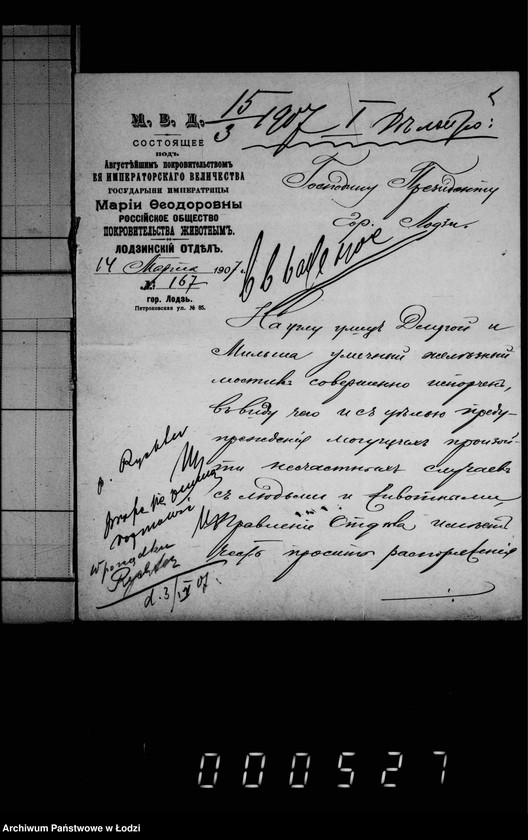 М. В. Д.
15/3 1907 I
СОСТОЯЩЕЕ
ПОДЪ
Августѣйшимъ покровительствомъ
ЕЯ ИМПЕРАТОРСКАГО ВЕЛИЧЕСТВА
ГОСУДАРЫНИ ИМПЕРАТРИЦЫ
Маріи Ѳеодоровны
РОССІЙСКОЕ ОБЩЕСТВО
ПОКРОВИТЕЛЬСТВА ЖИВОТНЫМЪ.
ЛОДЗИНСКІЙ ОТДѢЛЪ.
14 Марта 1907 г.
№ 167
гор. Лодзь.
Петроковская ул. № 85.
Господину Президенту
Гор. Лодзи.
На углу улицъ Длугой и
Мильша уличный желѣзный
мостикъ совершенно испорченъ,
въ виду чего и съ цѣлью преду-
прежденія могущихъ произой-
ти несчастныхъ случаевъ
съ людьми и животными,
Правленіе Отдѣла имѣетъ
честь просить распоряженія
p. Rychter
w porządku
Rychter
d. 3/IV 07.
000527
Archiwum Państwowe w Łodzi